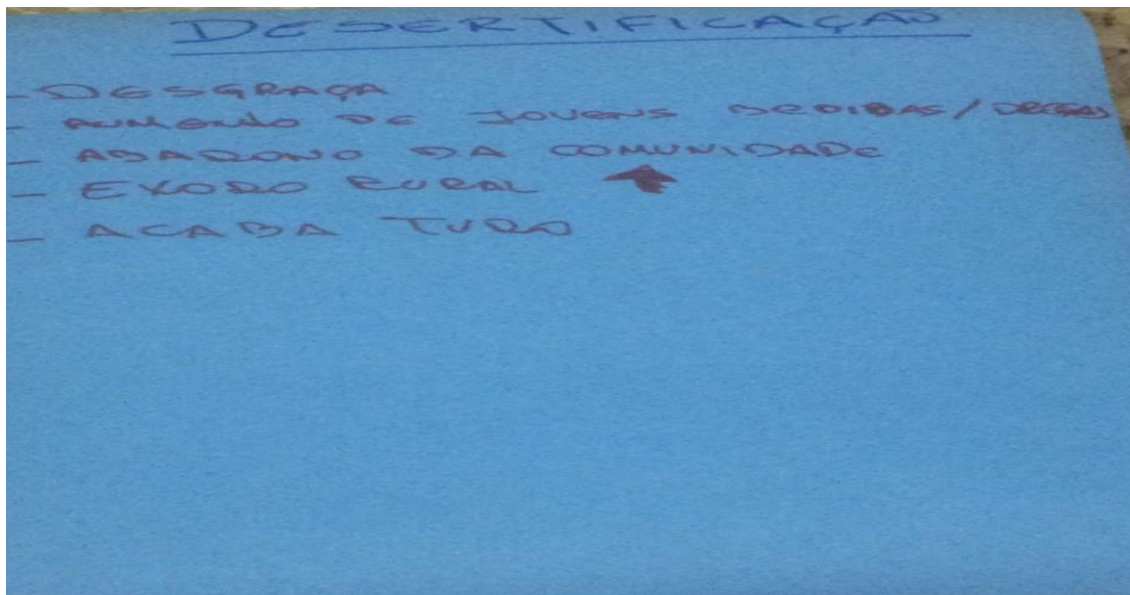 DESERTIFICAÇÃO
- DESGRAÇA
- AUMENTO DE JOVENS BEDIDAS/DROGAS
- ABADONO DA COMUNIDADE
- EXODO RURAL ↑
- ACABA TUDO